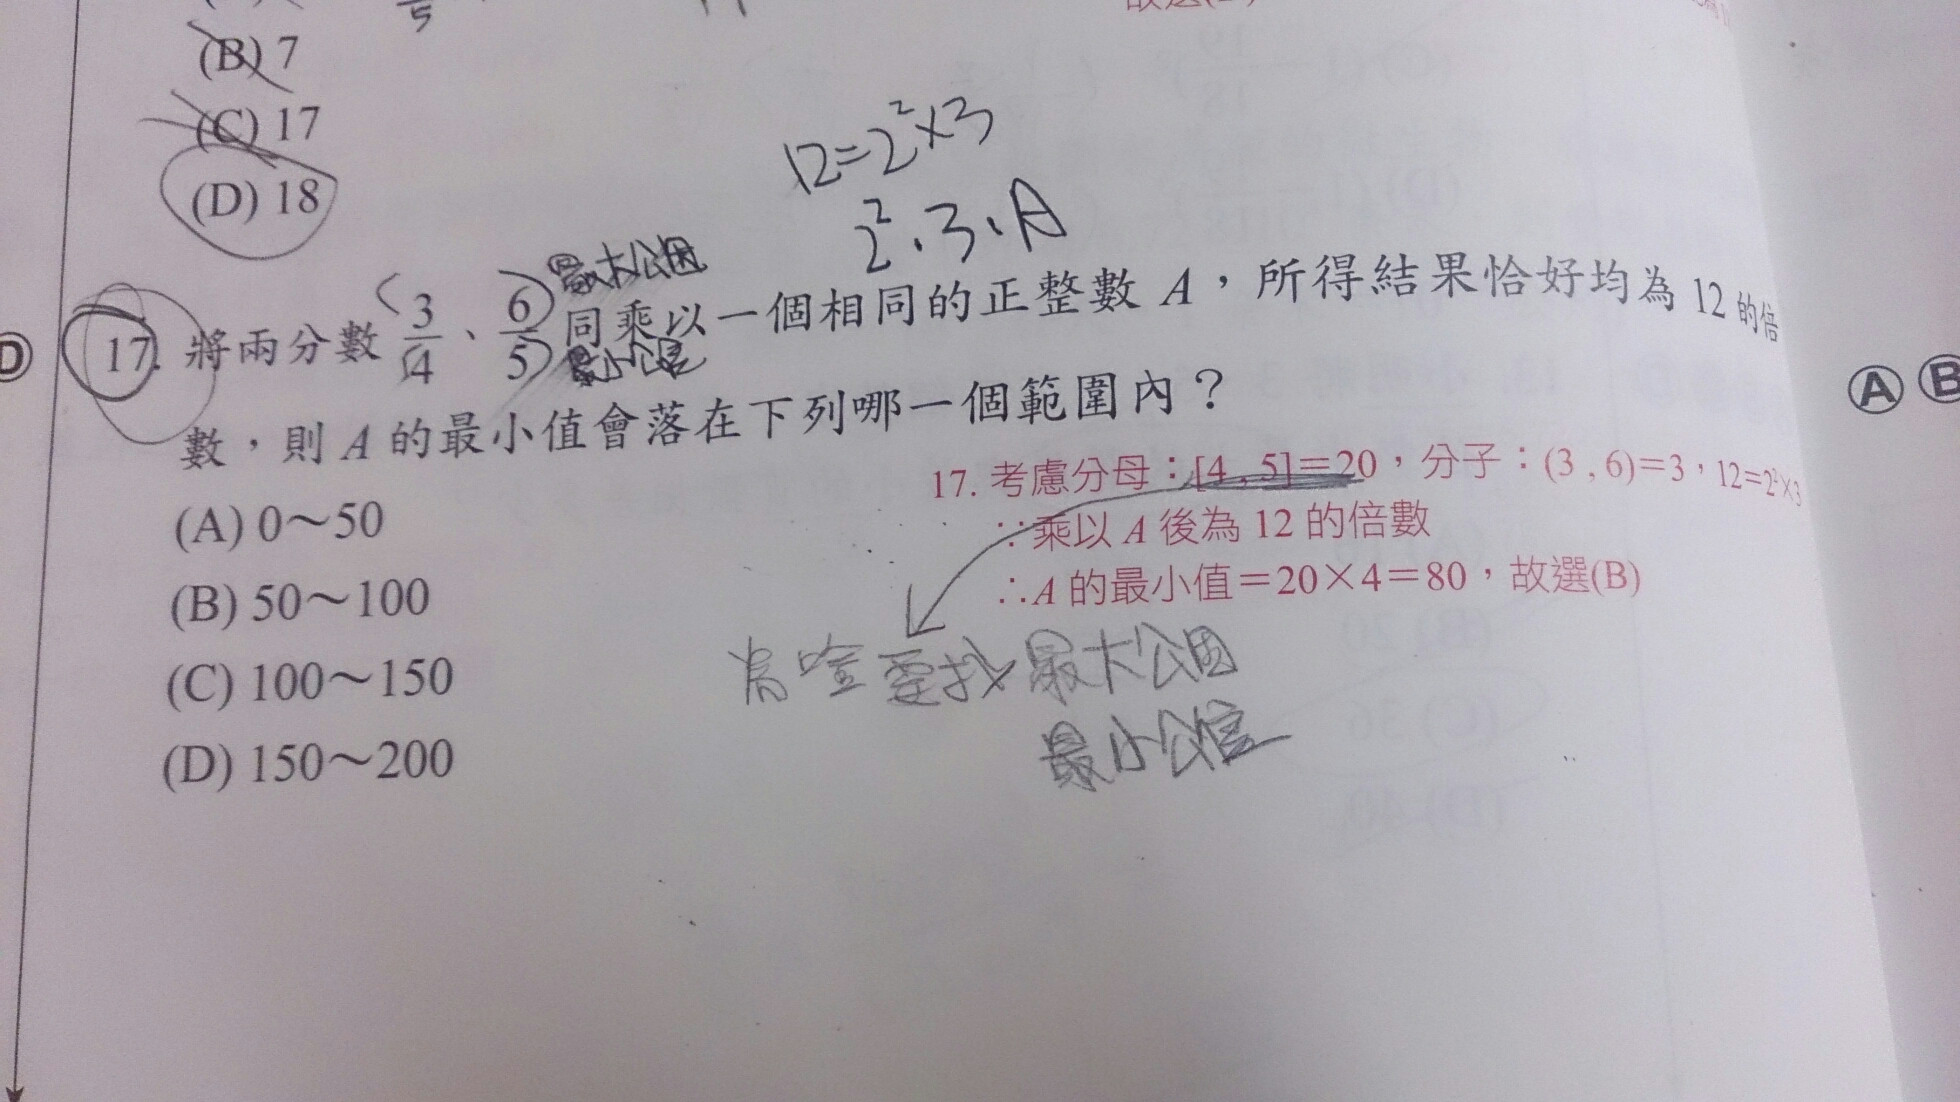 5
(B) 7
(C) 17
(D) 18
12=2²×3
2²·3·A
最大公因
17. 將兩分數 3/4、6/5 同乘以一個相同的正整數 A，所得結果恰好均為 12 的倍
最小公倍
數，則 A 的最小值會落在下列哪一個範圍內？
(A) 0～50
(B) 50～100
(C) 100～150
(D) 150～200
17. 考慮分母：[4 , 5]＝20，分子：(3 , 6)＝3，12＝2²×3
∵乘以 A 後為 12 的倍數
∴A 的最小值＝20×4＝80，故選(B)
為啥要找最大公因
最小公倍
D
A B